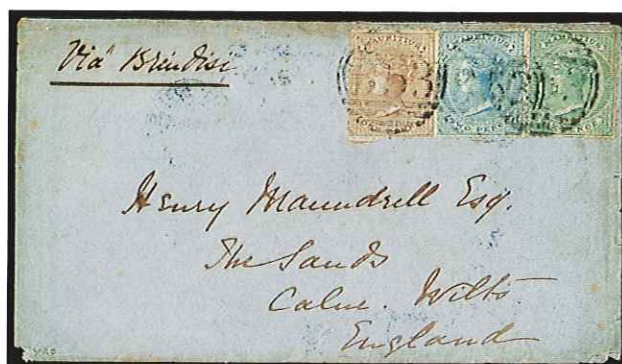 Via Brindisi
MAURITIUS MAURITIUS MAURITIUS
TWO PENCE
Henry Maundrell Esq.
The Sands
Calne. Wilts.
England